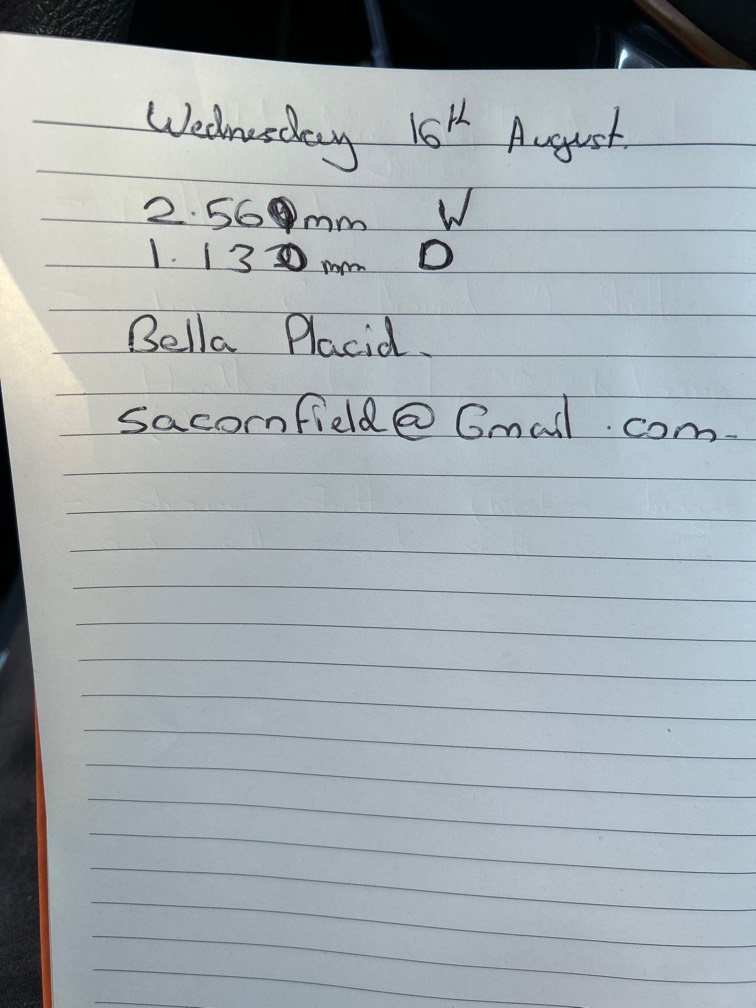 Wednesday 16th August.
2.560mm W
1.130mm D
Bella Placid.
sacornfield@Gmail.com